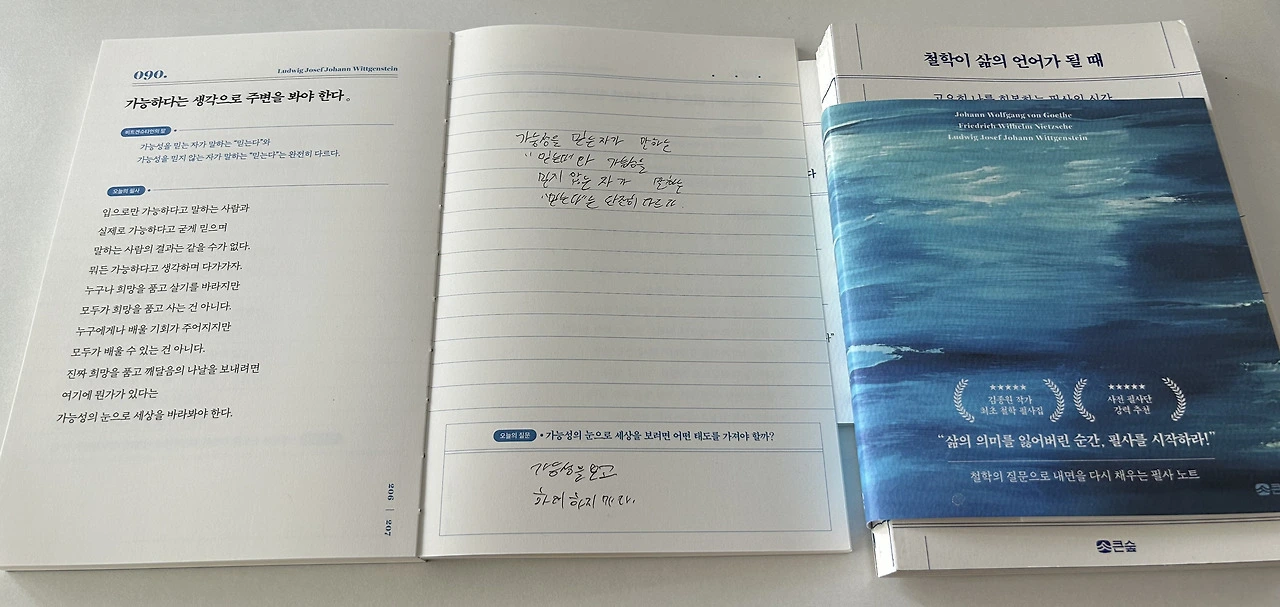 090.
Ludwig Josef Johann Wittgenstein
가능하다는 생각으로 주변을 봐야 한다.
비트겐슈타인의 말
가능성을 믿는 자가 말하는 “믿는다”와
가능성을 믿지 않는 자가 말하는 “믿는다”는 완전히 다르다.
오늘의 필사
입으로만 가능하다고 말하는 사람과
실제로 가능하다고 굳게 믿으며
말하는 사람의 결과는 같을 수가 없다.
뭐든 가능하다고 생각하며 다가가자.
누구나 희망을 품고 살기를 바라지만
모두가 희망을 품고 사는 건 아니다.
누구에게나 배울 기회가 주어지지만
모두가 배울 수 있는 건 아니다.
진짜 희망을 품고 깨달음의 나날을 보내려면
여기에 뭔가가 있다는
가능성의 눈으로 세상을 바라봐야 한다.
206 | 207
가능성을 믿는 자가 말하는
“믿는다”와 가능성을
믿지 않는 자가 말하는
“믿는다”는 완전히 다르다.
오늘의 질문
• 가능성의 눈으로 세상을 보려면 어떤 태도를 가져야 할까?
가능성을 보고
하지 마라.
철학이 삶의 언어가 될 때
고요히 나를 회복하는 필사의 시간
Johann Wolfgang von Goethe
Friedrich Wilhelm Nietzsche
Ludwig Josef Johann Wittgenstein
다
★★★★★
김종원 작가
최초 철학 필사집
★★★★★
사전 필사단
강력 추천
“삶의 의미를 잃어버린 순간, 필사를 시작하라!”
철학의 질문으로 내면을 다시 채우는 필사 노트
큰숲
큰숲